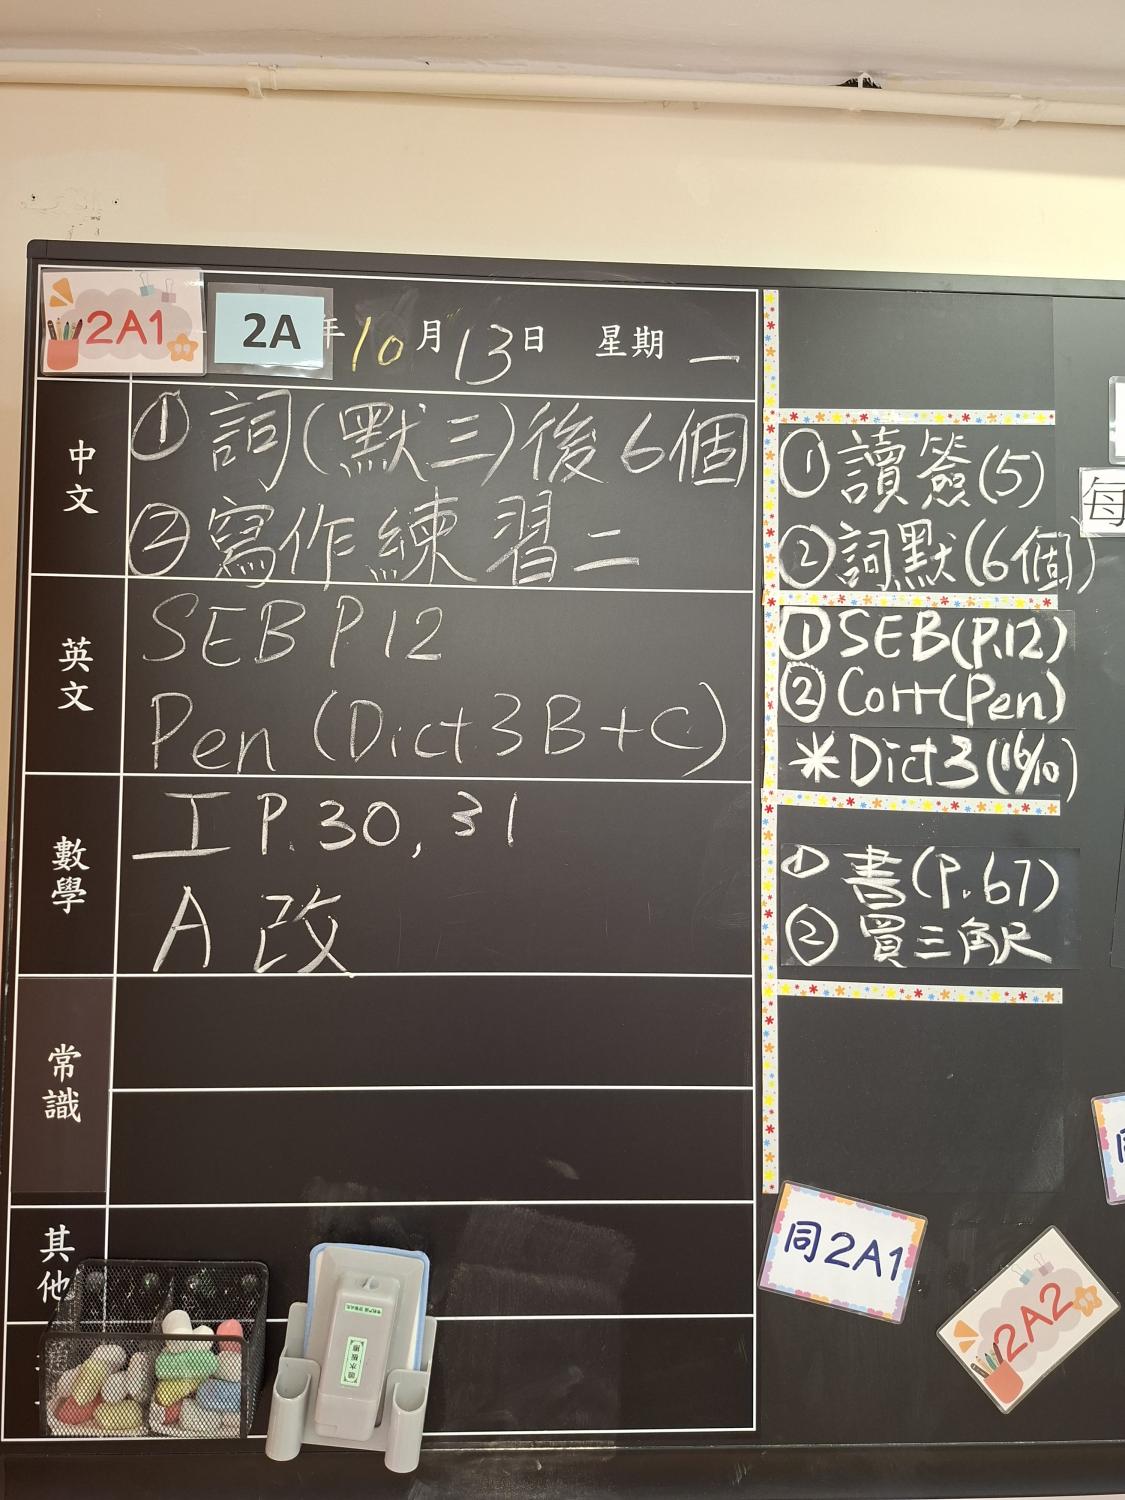 2A1 2A 年10月13日 星期 一
中文
①詞(默三)後6個
②寫作練習二
英文
SEB P.12
Pen (Dict 3B+C)
數學
工 P.30, 31
A 改
常識
其他
①讀簽(5)
②詞默(6個)
①SEB(P.12)
②Corr(Pen)
*Dict3(16/10)
①書(P.67)
②買三角尺
每
同2A1
2A2